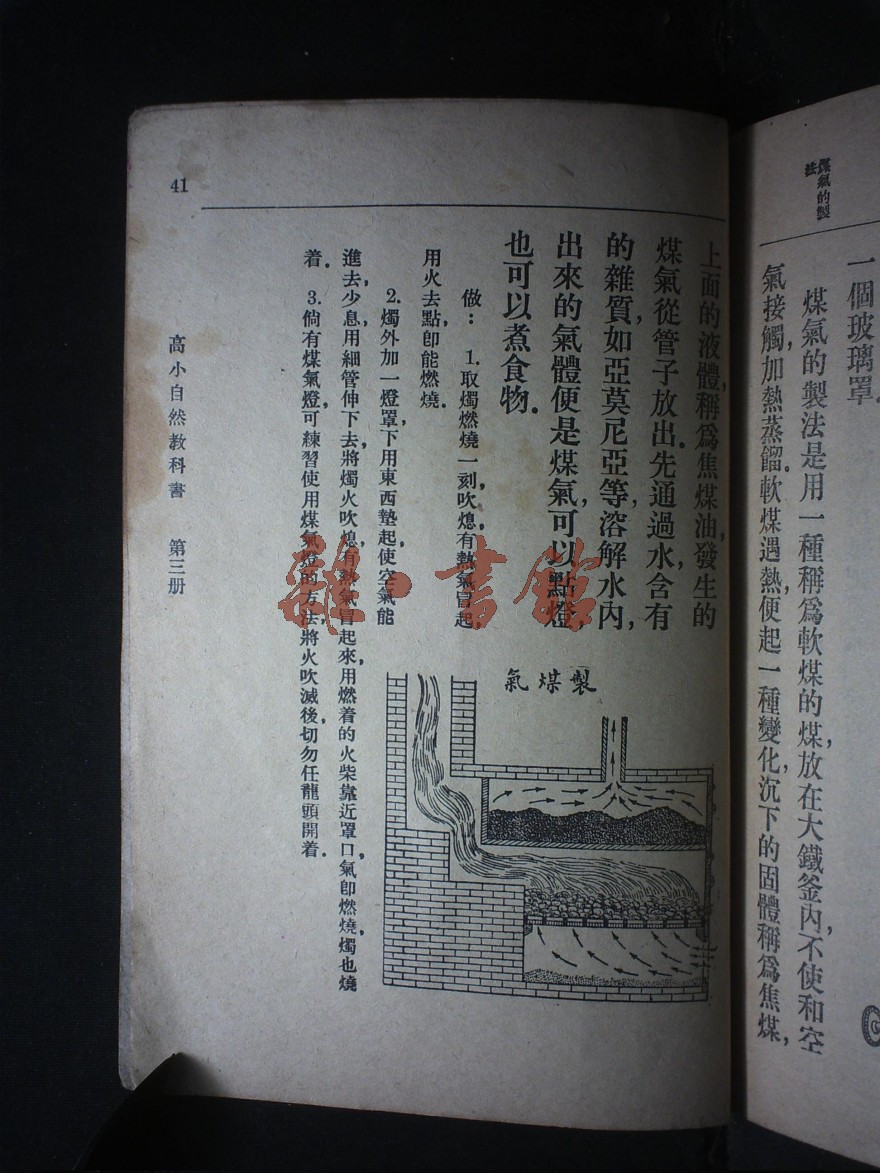 煤氣的製法
一個玻璃罩.
煤氣的製法是用一種稱爲軟煤的煤,放在大鐵釜內,不使和空
氣接觸,加熱蒸餾.軟煤遇熱便起一種變化,沉下的固體稱爲焦煤,
上面的液體,稱爲焦煤油,發生的
煤氣從管子放出.先通過水,含有
的雜質,如亞莫尼亞等,溶解水內,
出來的氣體便是煤氣,可以點燈,
也可以煮食物.
做: 1.取燭燃燒一刻,吹熄,有熱氣冒起,
用火去點,卽能燃燒.
2.燭外加一燈罩,下用東西墊起,使空氣能
進去,少息,用細管伸下去,將燭火吹熄,有熱氣冒起來,用燃着的火柴靠近罩口,氣卽燃燒,燭也燒
着. 3.倘有煤氣燈,可練習使用煤氣燈的方法,將火吹滅後,切勿任龍頭開着.
製煤氣
高小自然教科書 第三册
41
雜·書館